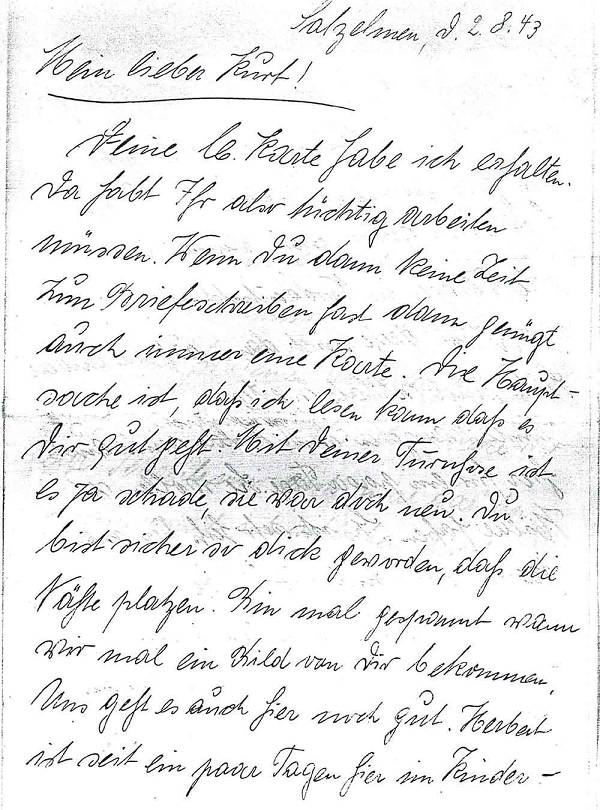 Salzelmen, d. 2.8.43
Mein lieber Kurt!
Deine lb. Karte habe ich erhalten.
Da habt Ihr also tüchtig arbeiten
müssen. Wenn Du dann keine Zeit
zum Briefeschreiben hast dann genügt
auch immer eine Karte. Die Haupt-
sache ist, daß ich lesen kann daß es
Dir gut geht. Mit Deiner Turnhose ist
es ja schade, sie war doch neu. Du
bist sicher so dick geworden, daß die
Nähte platzen. Bin mal gespannt wann
wir mal ein Bild von Dir bekommen.
Uns geht es auch hier noch gut. Herbert
ist seit ein paar Tagen hier im Kinder-